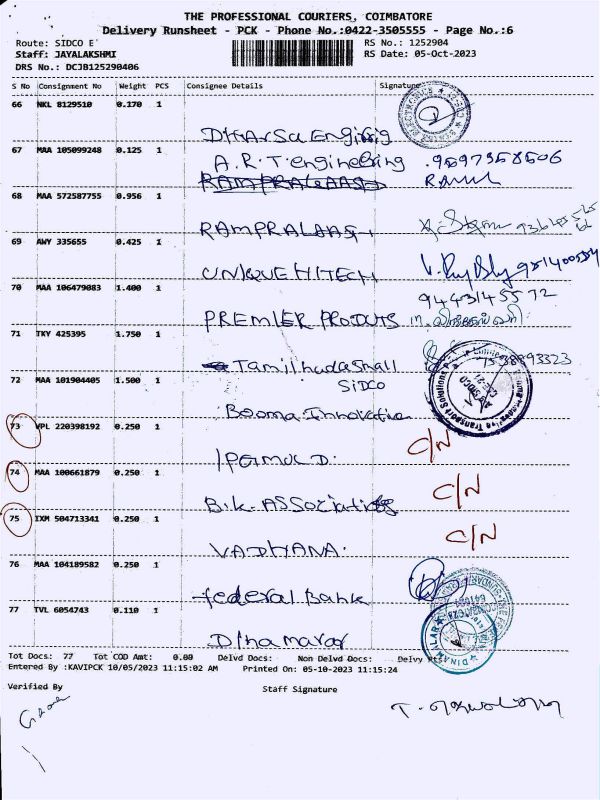 THE PROFESSIONAL COURIERS, COIMBATORE
Delivery Runsheet - PCK - Phone No.:0422-3505555 - Page No.:6
Route: SIDCO E
RS No.: 1252904
Staff: JAYALAKSHMI
RS Date: 05-Oct-2023
DRS No.: DCJB125290406
S No Consignment No Weight PCS Consignee Details Signature
66 NKL 8129510 0.170 1
67 MAA 105099248 0.125 1
A.R.T. engineering
68 MAA 572587755 0.956 1
RAMPRALAASH
69 AWY 335655 0.425 1
UNIQUE HITECH
70 MAA 106479083 1.400 1
9443145572
PREMIER PRODUTS
71 TKY 425395 1.750 1
Tamilnadu Small
SiDCO
72 MAA 101904405 1.500 1
Booma Innovative
73 VPL 220398192 0.250 1
C/N
74 MAA 100661879 0.250 1
C/N
B.K. ASSociaties
75 IXM 504713341 0.250 1
C/N
VADHANA.
76 MAA 104189582 0.250 1
federal Bank
77 TVL 6054743 0.110 1
DINAMALAR
Tot Docs: 77 Tot COD Amt: 0.00 Delvd Docs: Non Delvd Docs: Delvy Pts:
Entered By :KAVIPCK 10/05/2023 11:15:02 AM Printed On: 05-10-2023 11:15:24
Verified By Staff Signature